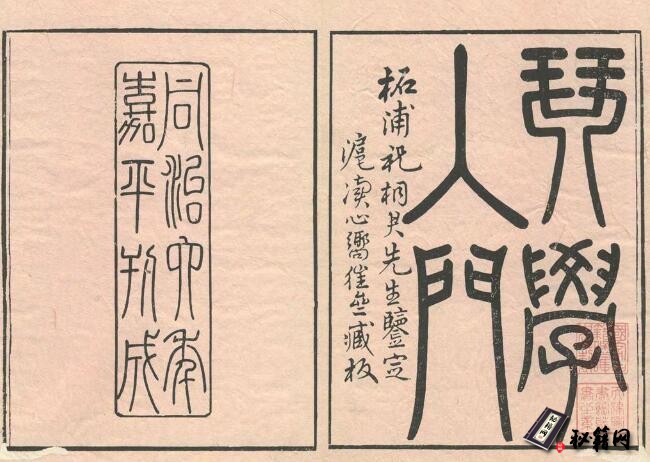 琴學
入門
柘浦祝桐君先生鑒定
滬瀆心嚮往齋藏板
同治六年
嘉平刊成
秘籍网